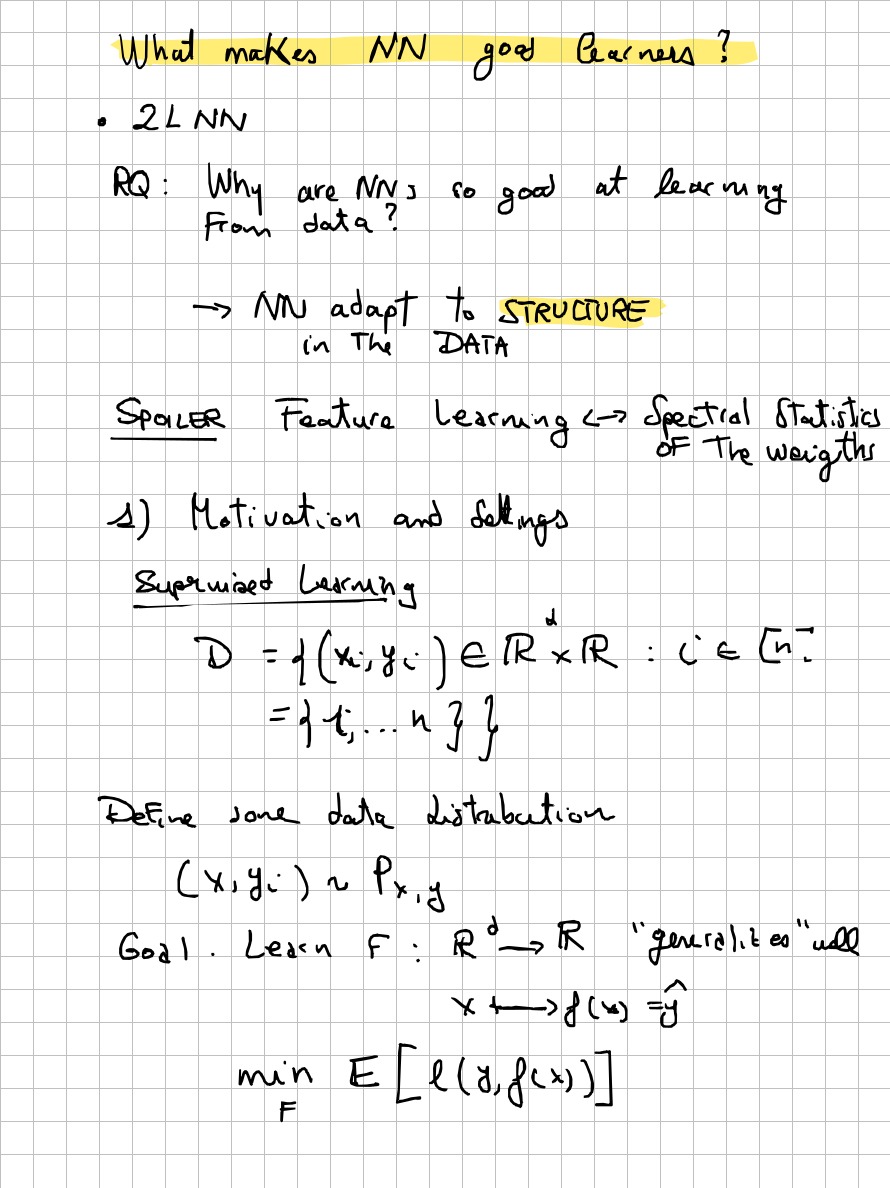 What makes NN good learners?
• 2L NN
RQ: Why are NNs so good at learning
From data?
→ NN adapt to STRUCTURE
in The DATA
SPOILER Feature Learning ↔ Spectral Statistics
OF The weigths
1) Motivation and Settings
Supervised Learning
D = {(xᵢ, yᵢ) ∈ ℝᵈ × ℝ : i ∈ [n]
= {1, ... n}}
Define some data distribution
(x, yᵢ) ~ Pₓ,y
Goal. Learn F : ℝᵈ → ℝ "generalizes" well
x ↦ f(x) = ŷ
min E[ℓ(y, f(x))]
F